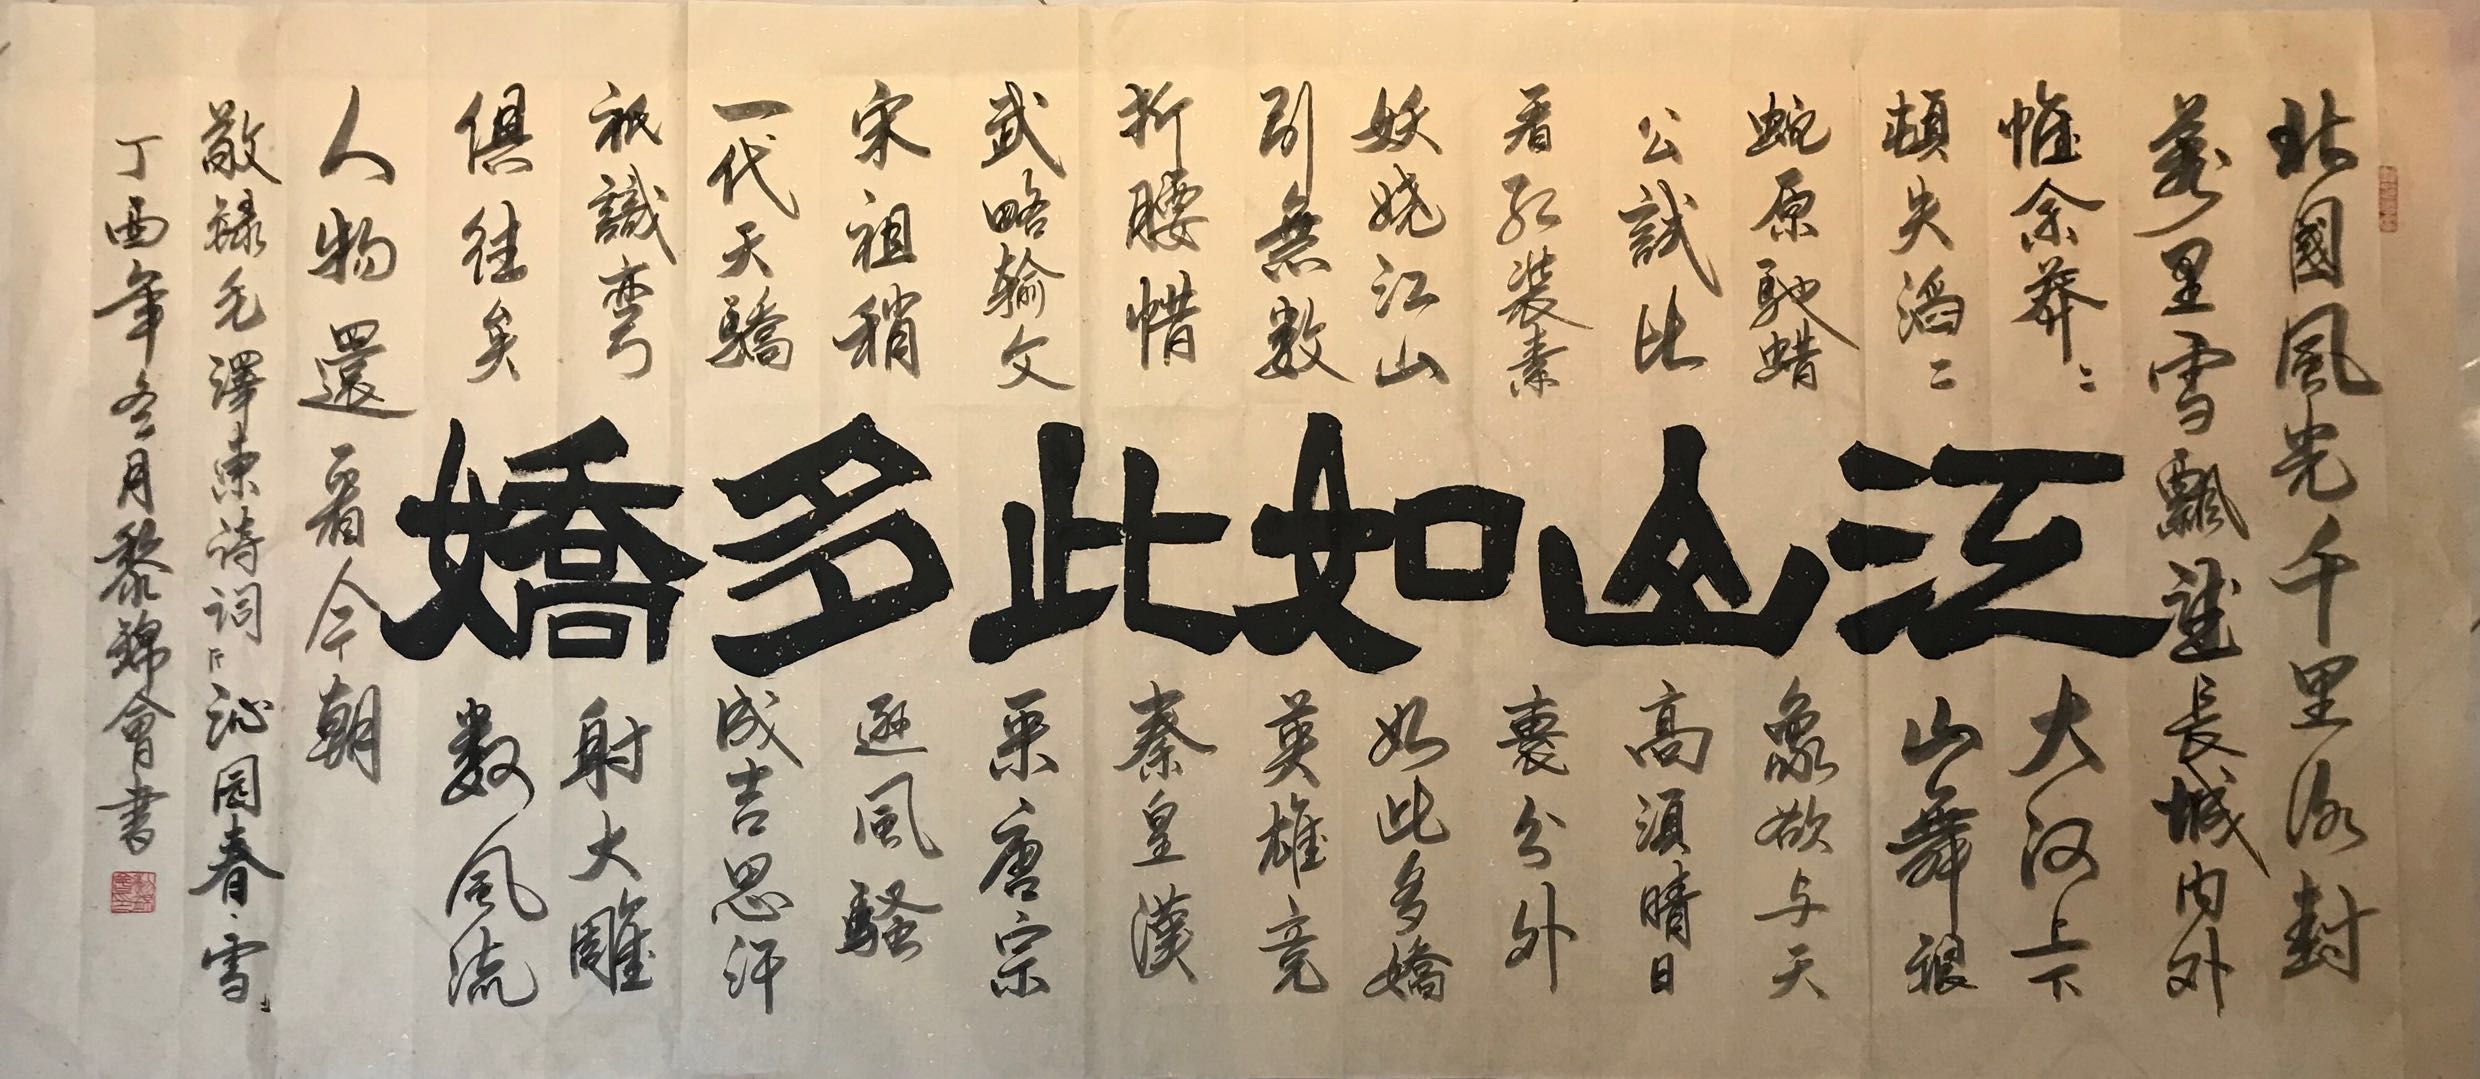 江山如此多嬌
北國風光千里冰封
萬里雪飄望長城内外
惟余莽〻大河上下
頓失滔〻山舞銀
蛇原馳蜡象欲与天
公試比高須晴日
看红装素裹分外
妖娆江山如此多嬌
引無数英雄竞
折腰惜秦皇漢
武略輸文采唐宗
宋祖稍遜風騷
一代天驕成吉思汗
祇識弯弓射大雕
俱往矣数風流
人物還看今朝
敬録毛澤東詩词沁园春·雪
丁酉年冬月黎錦會書